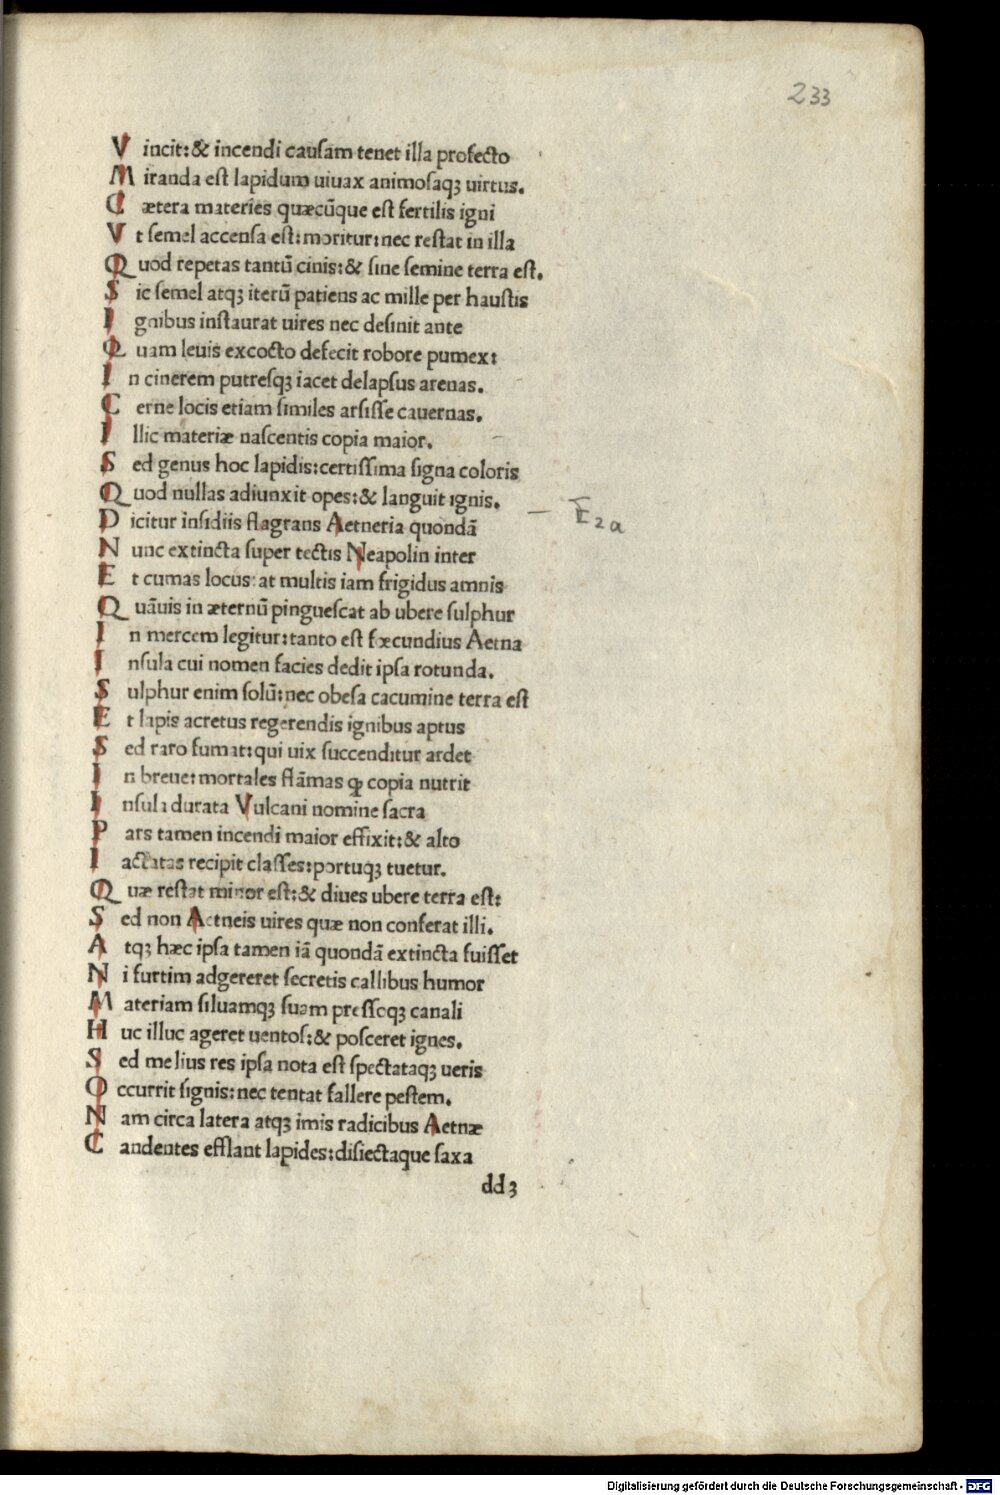 233
Vincit:& incendi causam tenet illa profecto
Miranda est lapidum uiuax animosaqꝫ uirtus.
Cætera materies quæcūque est fertilis igni
Vt semel accensa est:moritur:nec restat in illa
Quod repetas tantū cinis:& sine semine terra est.
Sic semel atqꝫ iterū patiens ac mille per haustis
Ignibus instaurat uires nec desinit ante
Quam leuis excocto defecit robore pumex:
In cinerem putresqꝫ iacet delapsus arenas.
Cerne locis etiam similes arsisse cauernas.
Illic materiæ nascentis copia maior.
Sed genus hoc lapidis:certissima signa coloris
Quod nullas adiunxit opes:& languit ignis.
Dicitur insidiis flagrans Aetneria quondā
Nunc extincta super tectis Neapolin inter
Et cumas locus:at multis iam frigidus amnis
Quāuis in æternū pinguescat ab ubere sulphur
In mercem legitur:tanto est fœcundius Aetna
Insula cui nomen facies dedit ipsa rotunda.
Sulphur enim solū:nec obesa cacumine terra est
Et lapis acretus regerendis ignibus aptus
Sed raro fumat:qui uix succenditur ardet
In breue:mortales flāmas ꝙ copia nutrit
Insula durata Vulcani nomine sacra
Pars tamen incendi maior effixit:& alto
Iactatas recipit classes:portuqꝫ tuetur.
Quæ restat minor est:& diues ubere terra est:
Sed non Aetneis uires quæ non conferat illi.
Atqꝫ hæc ipsa tamen iā quondā extincta fuisset
Ni furtim adgereret secretis callibus humor
Materiam siluamqꝫ suam presseqꝫ canali
Huc illuc ageret uentos:& posceret ignes.
Sed melius res ipsa nota est spectataqꝫ ueris
Occurrit signis:nec tentat fallere pestem.
Nam circa latera atqꝫ imis radicibus Aetnæ
Candentes efflant lapides:disiectaque saxa
dd3
Digitalisierung gefördert durch die Deutsche Forschungsgemeinschaft - DFG